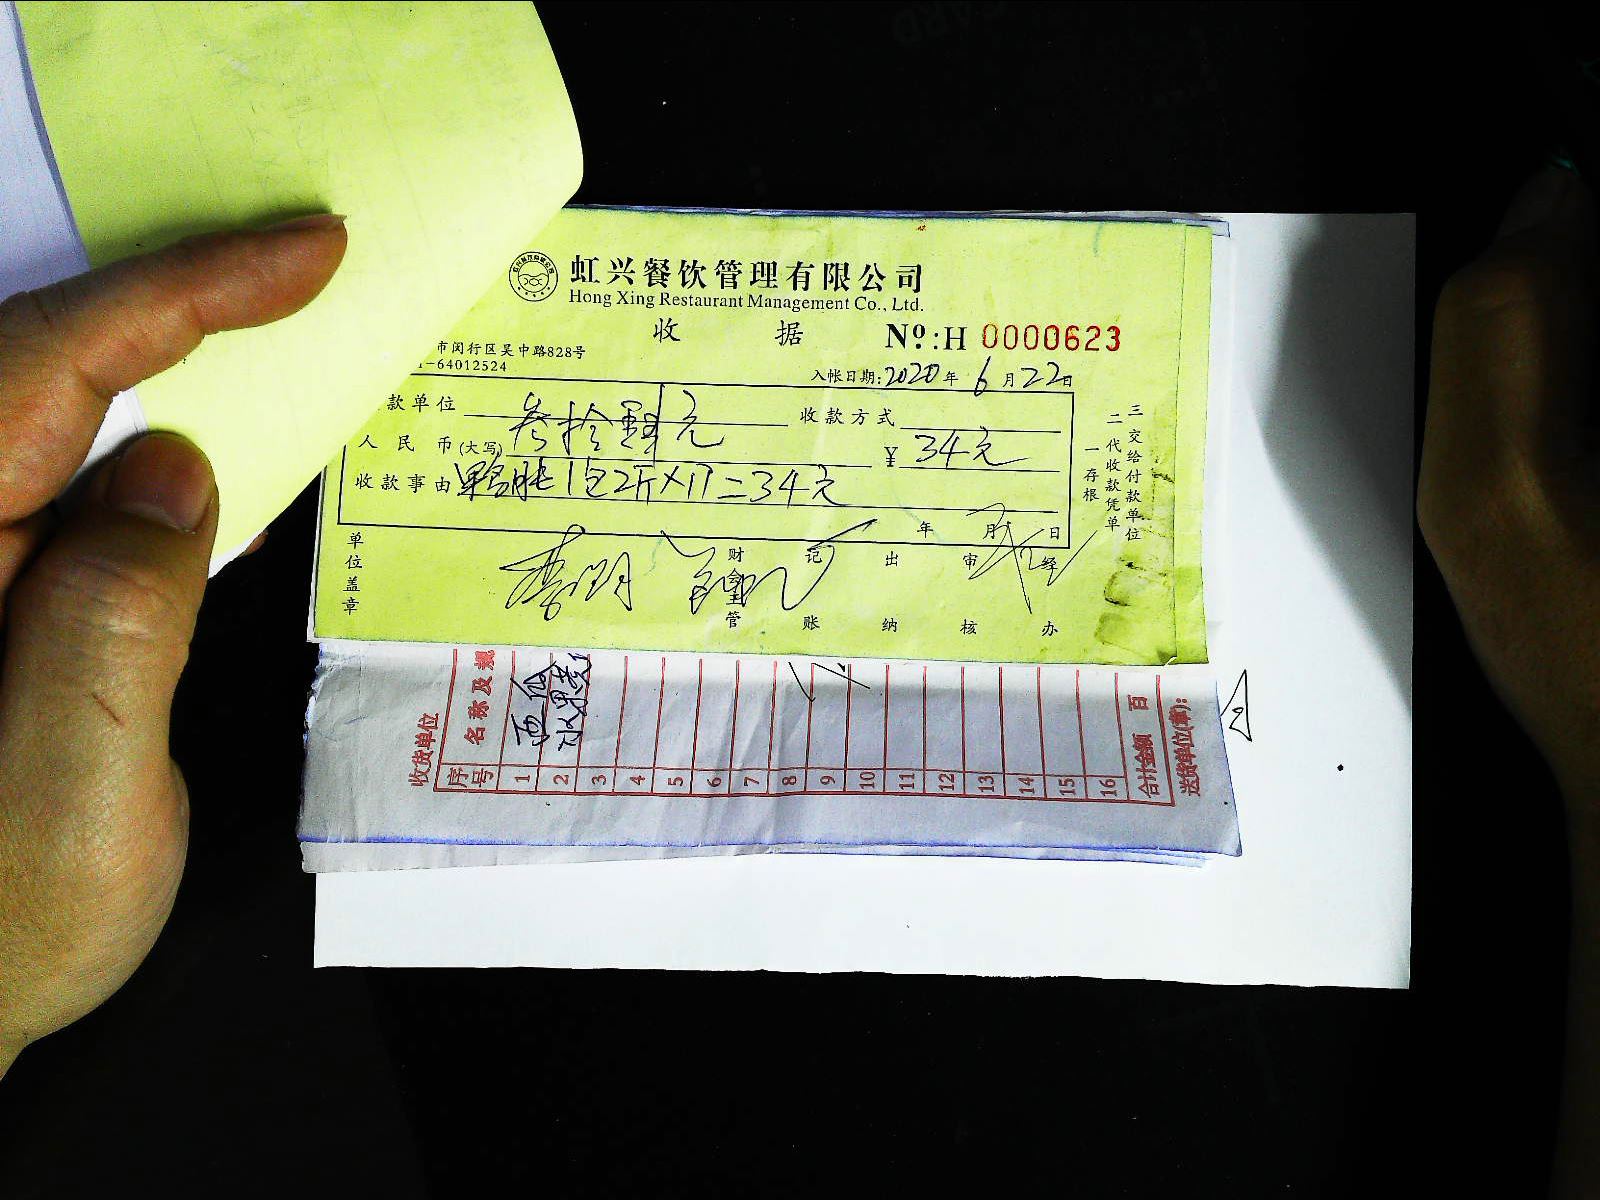 虹兴餐饮管理有限公司
Hong Xing Restaurant Management Co., Ltd.
收 据 Nº:H 0000623
市闵行区吴中路828号
1-64012524
入帐日期:2020年6月22日
款单位 收款方式
人民币(大写) 叁拾肆元 ¥34元
收款事由 1包2斤×17=34元
年 月 日
单位盖章
财 记 出 审 经
管 账 纳 核 办
一存根
二代收款凭单
三交给付款单位
收货单位
序号 名称及规
1 西
2 水果
3
4
5
6
7
8
9
10
11
12
13
14
15
16
合计金额 百
送货单位(章):